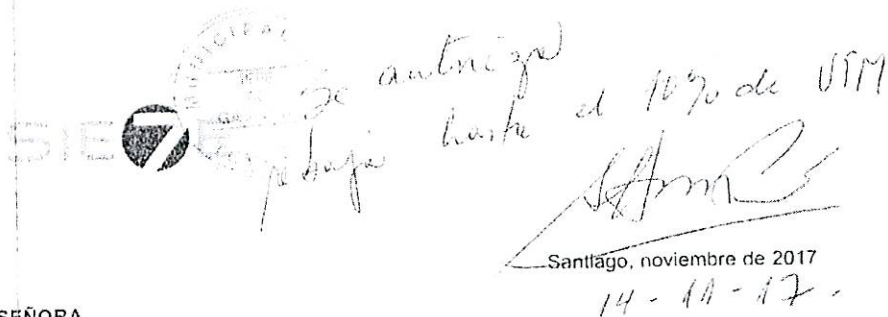 MUNICIPA
SIE7E
Se autoriza
rebaja hasta el 10% de UTM
Santiago, noviembre de 2017
14-11-17.
SEÑORA